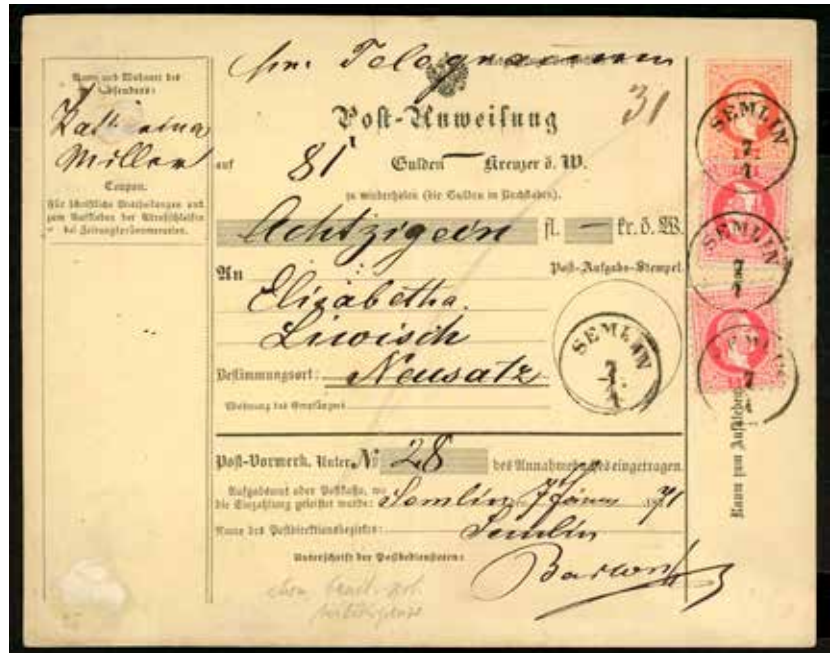 per Telegramm
Name und Wohnort des
Absenders:
Miller
Coupon.
Für schriftliche Mittheilungen und
zum Aufkleben der Adreßschleifen
bei Zeitungspränumerationen.
Post-Anweisung
31
auf 81 Gulden — Kreuzer ö. W.
zu wiederholen (die Gulden in Buchstaben).
Achtzigein fl. — kr. ö. W.
An
Post-Aufgabs-Stempel.
Elisabetha
Liwisch
Bestimmungsort: Neusatz
Wohnung des Empfängers
SEMLIN
7
1
Post-Vormerk. Unter № 28 des Annahmebuches eingetragen.
Aufgabsamt oder Postkasse, wo
die Einzahlung geleistet wurde: Semlin 7 1871
Name des Postdirektionsbezirkes: Semlin
Unterschrift der Postbediensteten:
SEMLIN
7
1
SEMLIN
7
1
SEMLIN
7
1
Raum zum Aufkleben